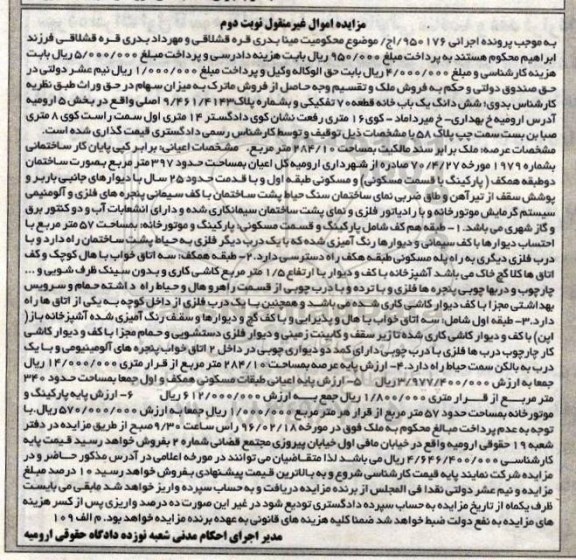 مزایده اموال غیرمنقول نوبت دوم
به موجب پرونده اجرائی ۹۵۰۱۷۶/اج/ موضوع محکومیت مینا بدری قره قشلاقی و مهرداد بدری قره قشلاقی فرزند
ابراهیم محکوم هستند به پرداخت مبلغ ۹۵۰/۰۰۰ ریال بابت هزینه دادرسی و پرداخت مبلغ ۵/۰۰۰/۰۰۰ ریال بابت
هزینه کارشناسی و مبلغ ۴/۰۰۰/۰۰۰ ریال بابت حق الوکاله وکیل و پرداخت مبلغ ۱/۰۰۰/۰۰۰ ریال نیم عشر دولتی در
حق صندوق دولتی و حکم به فروش ملک و تقسیم وجه حاصل از فروش ماترک به میزان سهام در حق وراث طبق نظریه
کارشناس بدوی؛ شش دانگ یک باب خانه قطعه ۷ تفکیکی و بشماره پلاک ۹/۴۶۱/۴۱۴۳ اصلی واقع در بخش ۵ ارومیه
آدرس ارومیه خ بهداری- خ میرداماد - کوی ۱۶ متری رفعت نشان کوی دادگستر ۱۴ متری اول سمت راست کوی ۸ متری
صبا بن بست سمت چپ پلاک ۵۸ با مشخصات ذیل توقیف و توسط کارشناس رسمی دادگستری قیمت گذاری شده است.
مشخصات عرصه: ملک برابر سند مالکیت بمساحت ۲۸۴/۱۰ متر مربع. مشخصات اعیانی: برابر کپی پایان کار ساختمانی
بشماره ۱۹۷۹ مورخه ۷۰/۴/۲۷ صادره از شهرداری ارومیه کل اعیان بمساحت حدود ۳۹۷ متر مربع بصورت ساختمان
دوطبقه همکف ( پارکینگ با قسمت مسکونی) و مسکونی طبقه اول و با قدمت حدود ۲۵ سال با دیوارهای جانبی باربر و
پوشش سقف از تیرآهن و طاق ضربی نمای ساختمان سنگ حیاط پشت ساختمان با کف سیمانی پنجره های فلزی و آلومنیمی
سیستم گرمایش موتورخانه و با رادیاتور فلزی و نمای پشت ساختمان سیمانکاری شده و دارای انشعابات آب و دو کنتور برق
و گاز شهری می باشد. ۱- طبقه هم کف شامل پارکینگ و قسمت مسکونی: پارکینگ و موتورخانه: بمساحت ۵۷ متر مربع با
احتساب دیوارها با کف سیمانی و دیوارها رنگ آمیزی شده که با یک درب دیگر فلزی به حیاط پشت ساختمان راه دارد و با
درب فلزی دیگری به راه پله مسکونی طبقه هکف راه دسترسی دارد. ۲- طبقه همکف: سه اتاق خواب با هال کوچک و کف
اتاق ها کلا گچ خاک می باشد آشپزخانه با کف و دیوار با ارتفاع ۱/۵ متر مربع کاشی کاری و بدون سینک ظرف شویی و ...
چارچوب و دربها چوبی پنجره ها فلزی و با نرده و با درب چوبی از قسمت راهرو و هال و حیاط راه داشته حمام و سرویس
بهداشتی مجزا با کف و دیوار کاشی کاری شده می باشد و همچنین با یک درب فلزی از داخل کوچه به یکی از اتاق ها راه
دارد. ۳- طبقه اول شامل: سه اتاق خواب با هال و پذیرایی و با کف گچ و دیوار ها و سقف رنگ آمیزی شده آشپزخانه باز(
اپن) با کف و دیوار کاشی کاری شده تا زیر سقف و کابینت زمینی و دیوار فلزی دستشویی و حمام مجزا با کف و دیوار کاشی
کار چارچوب درب ها فلزی با درب چوبی دارای کمد دو دیواری چوبی در داخل ۲ اتاق خواب پنجره های آلومینیومی و با یک
درب به بالکن سمت حیاط راه دارد. ۴- ارزش پایه عرصه بمساحت ۲۸۴/۱۰ متر مربع از قرار متری ۱۴/۰۰۰/۰۰۰ ریال
جمعا به ارزش ۳/۹۷۷/۴۰۰/۰۰۰ ریال ۵- ارزش پایه اعیانی طبقات مسکونی همکف و اول جمعا بمساحت حدود ۳۴۰
متر مربع از قرار متری ۱/۸۰۰/۰۰۰ ریال جمع به ارزش ۶۱۲/۰۰۰/۰۰۰ ریال ۶- ارزش پایه پارکینگ و
موتورخانه بمساحت حدود ۵۷ متر مربع از قرار هر متر مربع ۱/۰۰۰/۰۰۰ ریال جمعا به ارزش ۵۷/۰۰۰/۰۰۰ ریال. با
توجه به عدم پرداخت مبالغ محکوم به ملک فوق در مورخه ۹۶/۰۲/۱۸ راس ساعت ۹/۳۰ صبح از طریق مزایده در دفتر
شعبه ۱۹ حقوقی ارومیه واقع در خیابان مافی اول خیابان پیروزی مجتمع قضائی شماره ۲ بفروش خواهد رسید قیمت پایه
کارشناسی ۴/۶۴۶/۴۰۰/۰۰۰ ریال می باشد لذا متقاضیان می توانند در مورخه اعلامی در آدرس مذکور حاضر و در
مزایده شرکت نمایند پایه قیمت کارشناسی شروع و به بالاترین قیمت پیشنهادی بفروش خواهد رسید ۱۰ درصد مبلغ
مزایده و نیم عشر دولتی نقدا فی المجلس از برنده مزایده دریافت و به حساب سپرده واریز خواهد شد مابقی می بایست
ظرف یکماه از تاریخ مزایده به حساب سپرده دادگستری تودیع شود در غیر این صورت ده درصد واریزی پس از کسر هزینه
های مزایده به نفع دولت ضبط خواهد شد ضمنا کلیه هزینه های قانونی به عهده برنده مزایده خواهد بود. م الف ۱۰۹
مدیر اجرای احکام مدنی شعبه نوزده دادگاه حقوقی ارومیه